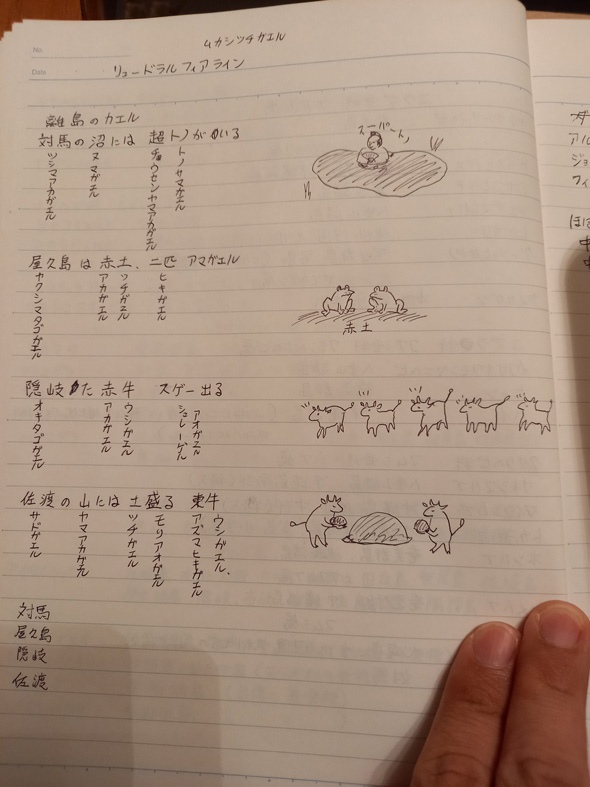 No.
ムカシツチガエル
Date
リュードラルフィアライン
離島のカエル
対馬の沼には 超トノがいる
ツシマアカガエル
ヌマガエル
チョウセンヤマアカガエル
トノサマガエル
スーパートノ
屋久島は赤土、二匹 アマガエル
ヤクシマタゴガエル
アカガエル
ツチガエル
ヒキガエル
赤土
隠岐た赤牛 スゲー出る
オキタゴガエル
アカガエル
ウシガエル
シュレーゲル
アオガエル
佐渡の山には土盛る 東牛
サドガエル
ヤマアカガエル
ツチガエル
モリアオガエル
アズマヒキガエル
ウシガエル.
対馬
屋久島
隠岐
佐渡
アル
ジョ
フィ
ほぼ